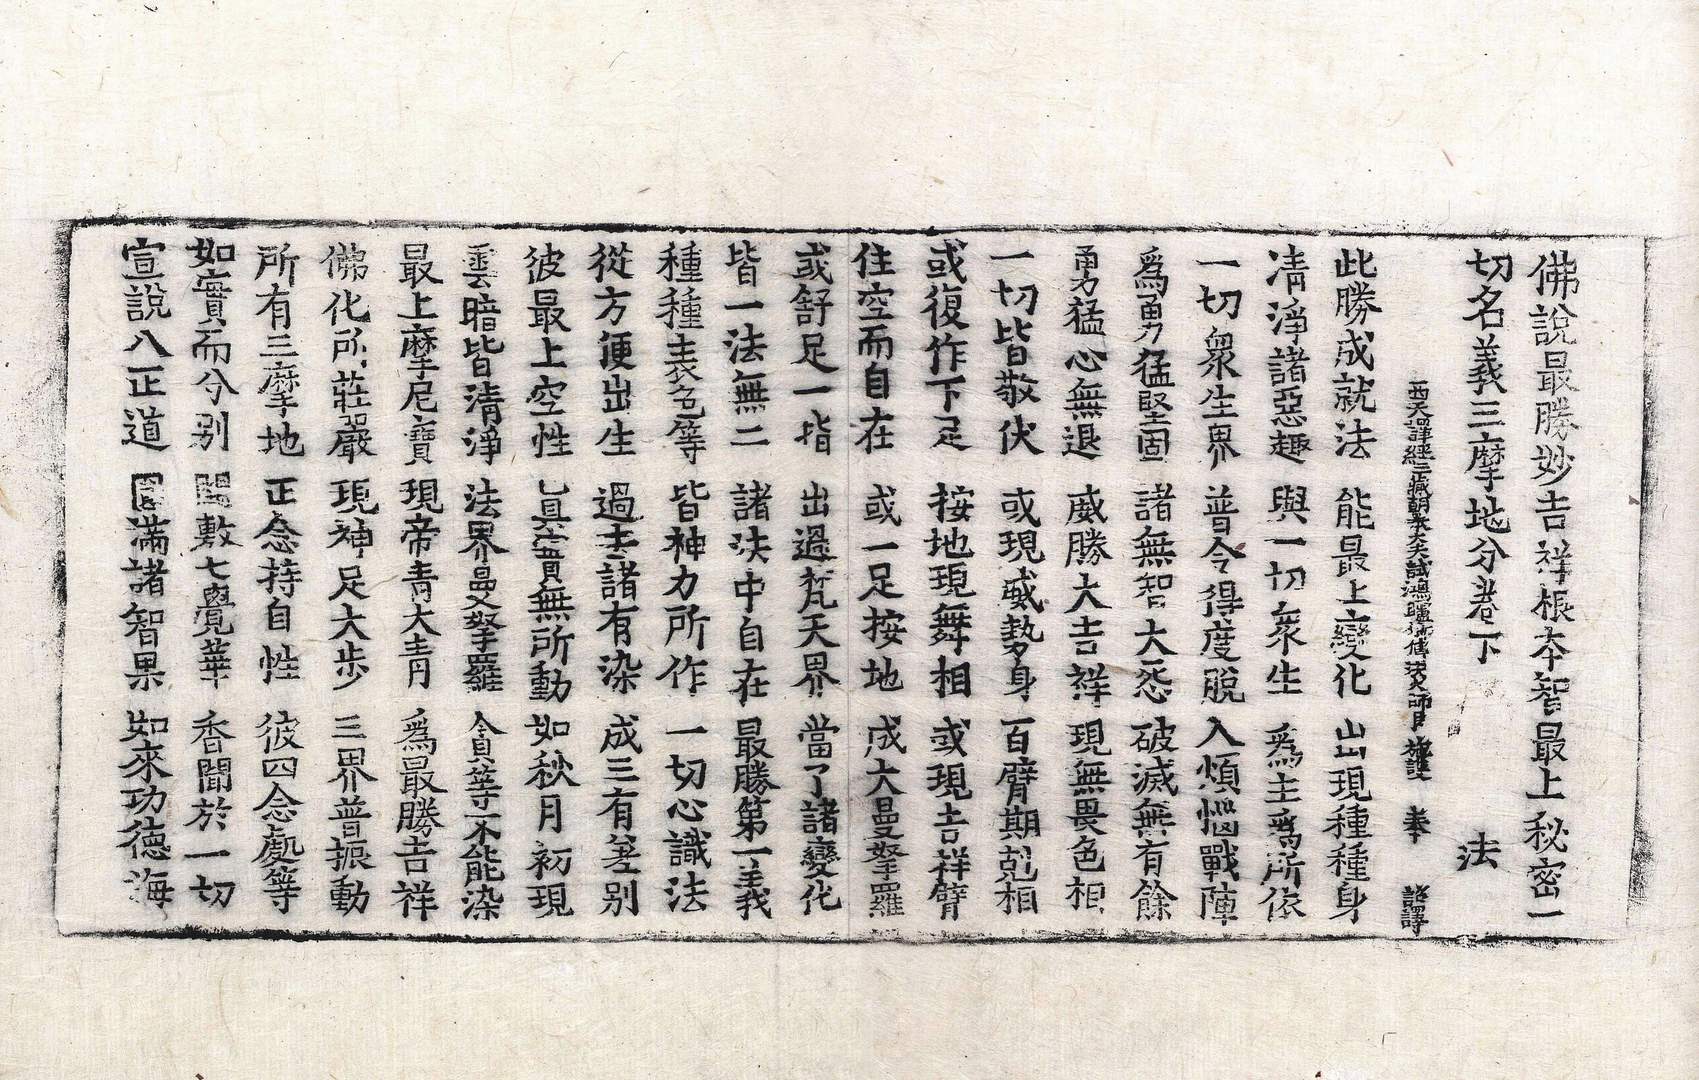 佛說最勝妙吉祥根本智最上秘密一
切名義三摩地分卷下 法
西天譯經三藏朝奉大夫試鴻臚少卿傳法大師臣施護 奉 詔譯
此勝成就法 能最上變化 出現種種身
清淨諸惡趣 與一切衆生 爲主爲所依
一切衆生界 普令得度脫 入煩惱戰陣
爲勇猛堅固 諸無智大怨 破滅無有餘
勇猛心無退 威勝大吉祥 現無畏色相
一切皆敬伏 或現威勢身 百臂期剋相
或復作下足 按地現舞相 或現吉祥臂
住空而自在 或一足按地 成大曼拏羅
或舒足一指 出過梵天界 當了諸變化
皆一法無二 諸法中自在 最勝第一義
種種表色等 皆神力所作 一切心識法
從方便出生 過去諸有染 成三有差別
彼最上空性 眞實無所動 如秋月初現
雲暗皆清淨 法界曼拏羅 貪等不能染
最上摩尼寶 現帝青大青 爲最勝吉祥
佛化所莊嚴 現神足大步 三界普振動
所有三摩地 正念持自性 彼四念處等
如實而分別 開敷七覺華 香聞於一切
宣說八正道 圓滿諸智果 如來功德海